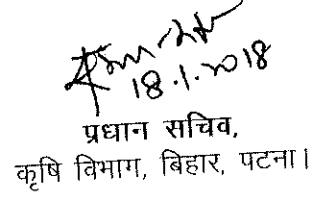 18.1.2018
प्रधान सचिव,
कृषि विभाग, बिहार, पटना।